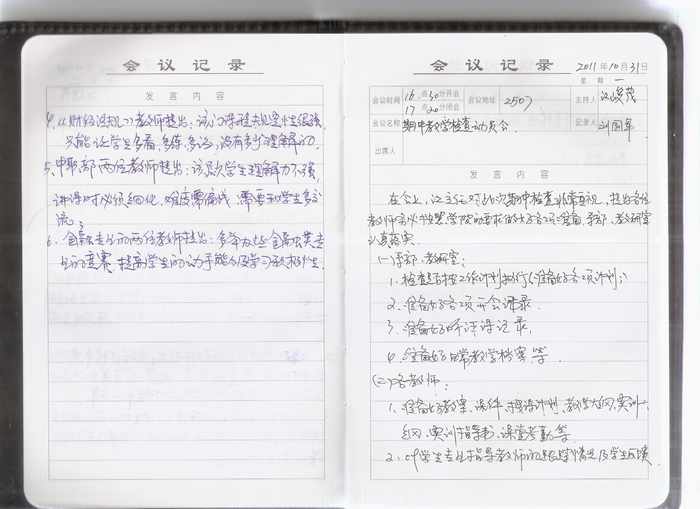 会议记录
发言内容
4. 《财经法规》教师提出：该门课程法规条性很强，
只能让学生多看，多练，多记，没有多少理解的。
5. 中职部两位教师提出：该层次学生理解力不强，
讲课时必须细化，难度需偏浅，需要和学生多交
流。
6. 金融专业的两位教师提出：多举办些金融类专
业的竞赛，提高学生的动手能力及学习积极性。
会议记录
2011年10月31日
星期一
会议时间 16点30分开会
17点20分闭会
会议地址 2507
主持人 汉茂
会议名称 期中教学检查动员会
记录人 刘国
出席人
发言内容
在会上，汉主任对此次期中检查非常重视，提出各位
教师务必按照学院的要求做好各项准备，系部、教研室
认真落实。
(一)系部、教研室：
1. 检查是否按工作计划执行(准备好各项计划)；
2. 准备好各项开会记录
3. 准备好听评课记录，
4. 准备好日常教学档案等
(二)各教师：
1. 准备好教案、课件、授课计划、教学大纲、实训大
纲、实训指导书、课堂考勤等
2. 学生专业指导教师的学情况及学生成绩